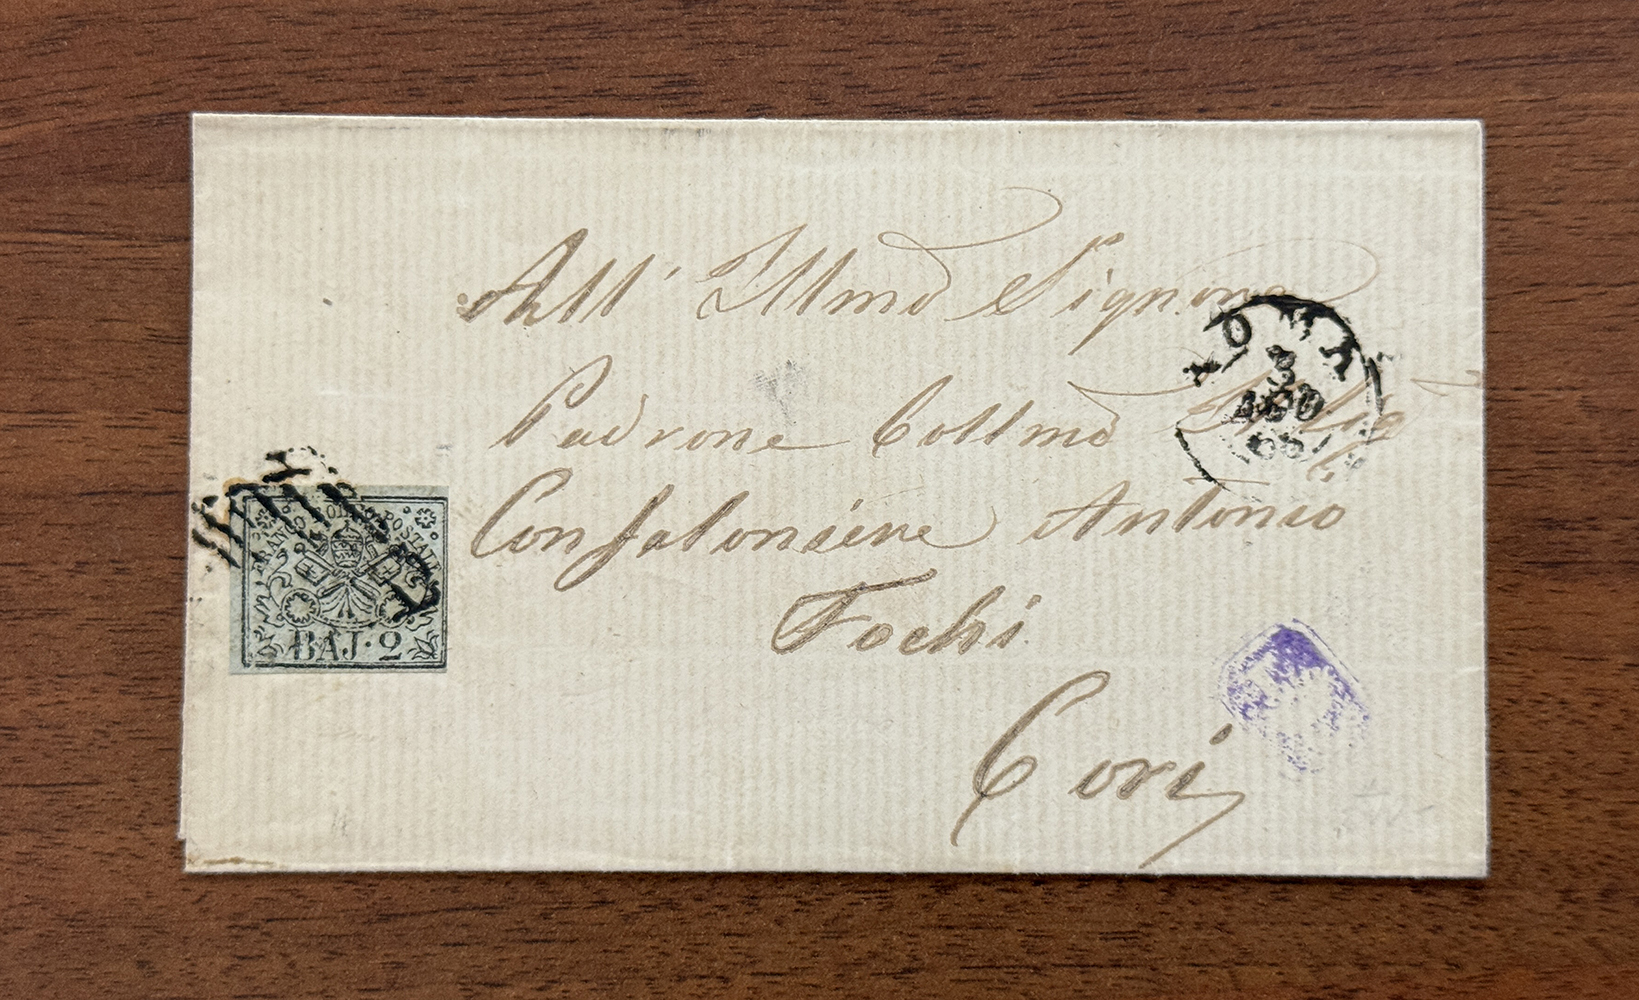 All' Illmo Signore
Padrone Collmo
Confaloniere Antonio
Fochi
Cori
ROMA
3
AGO
65
FRANCO BOLLO POSTALE
BAJ·2